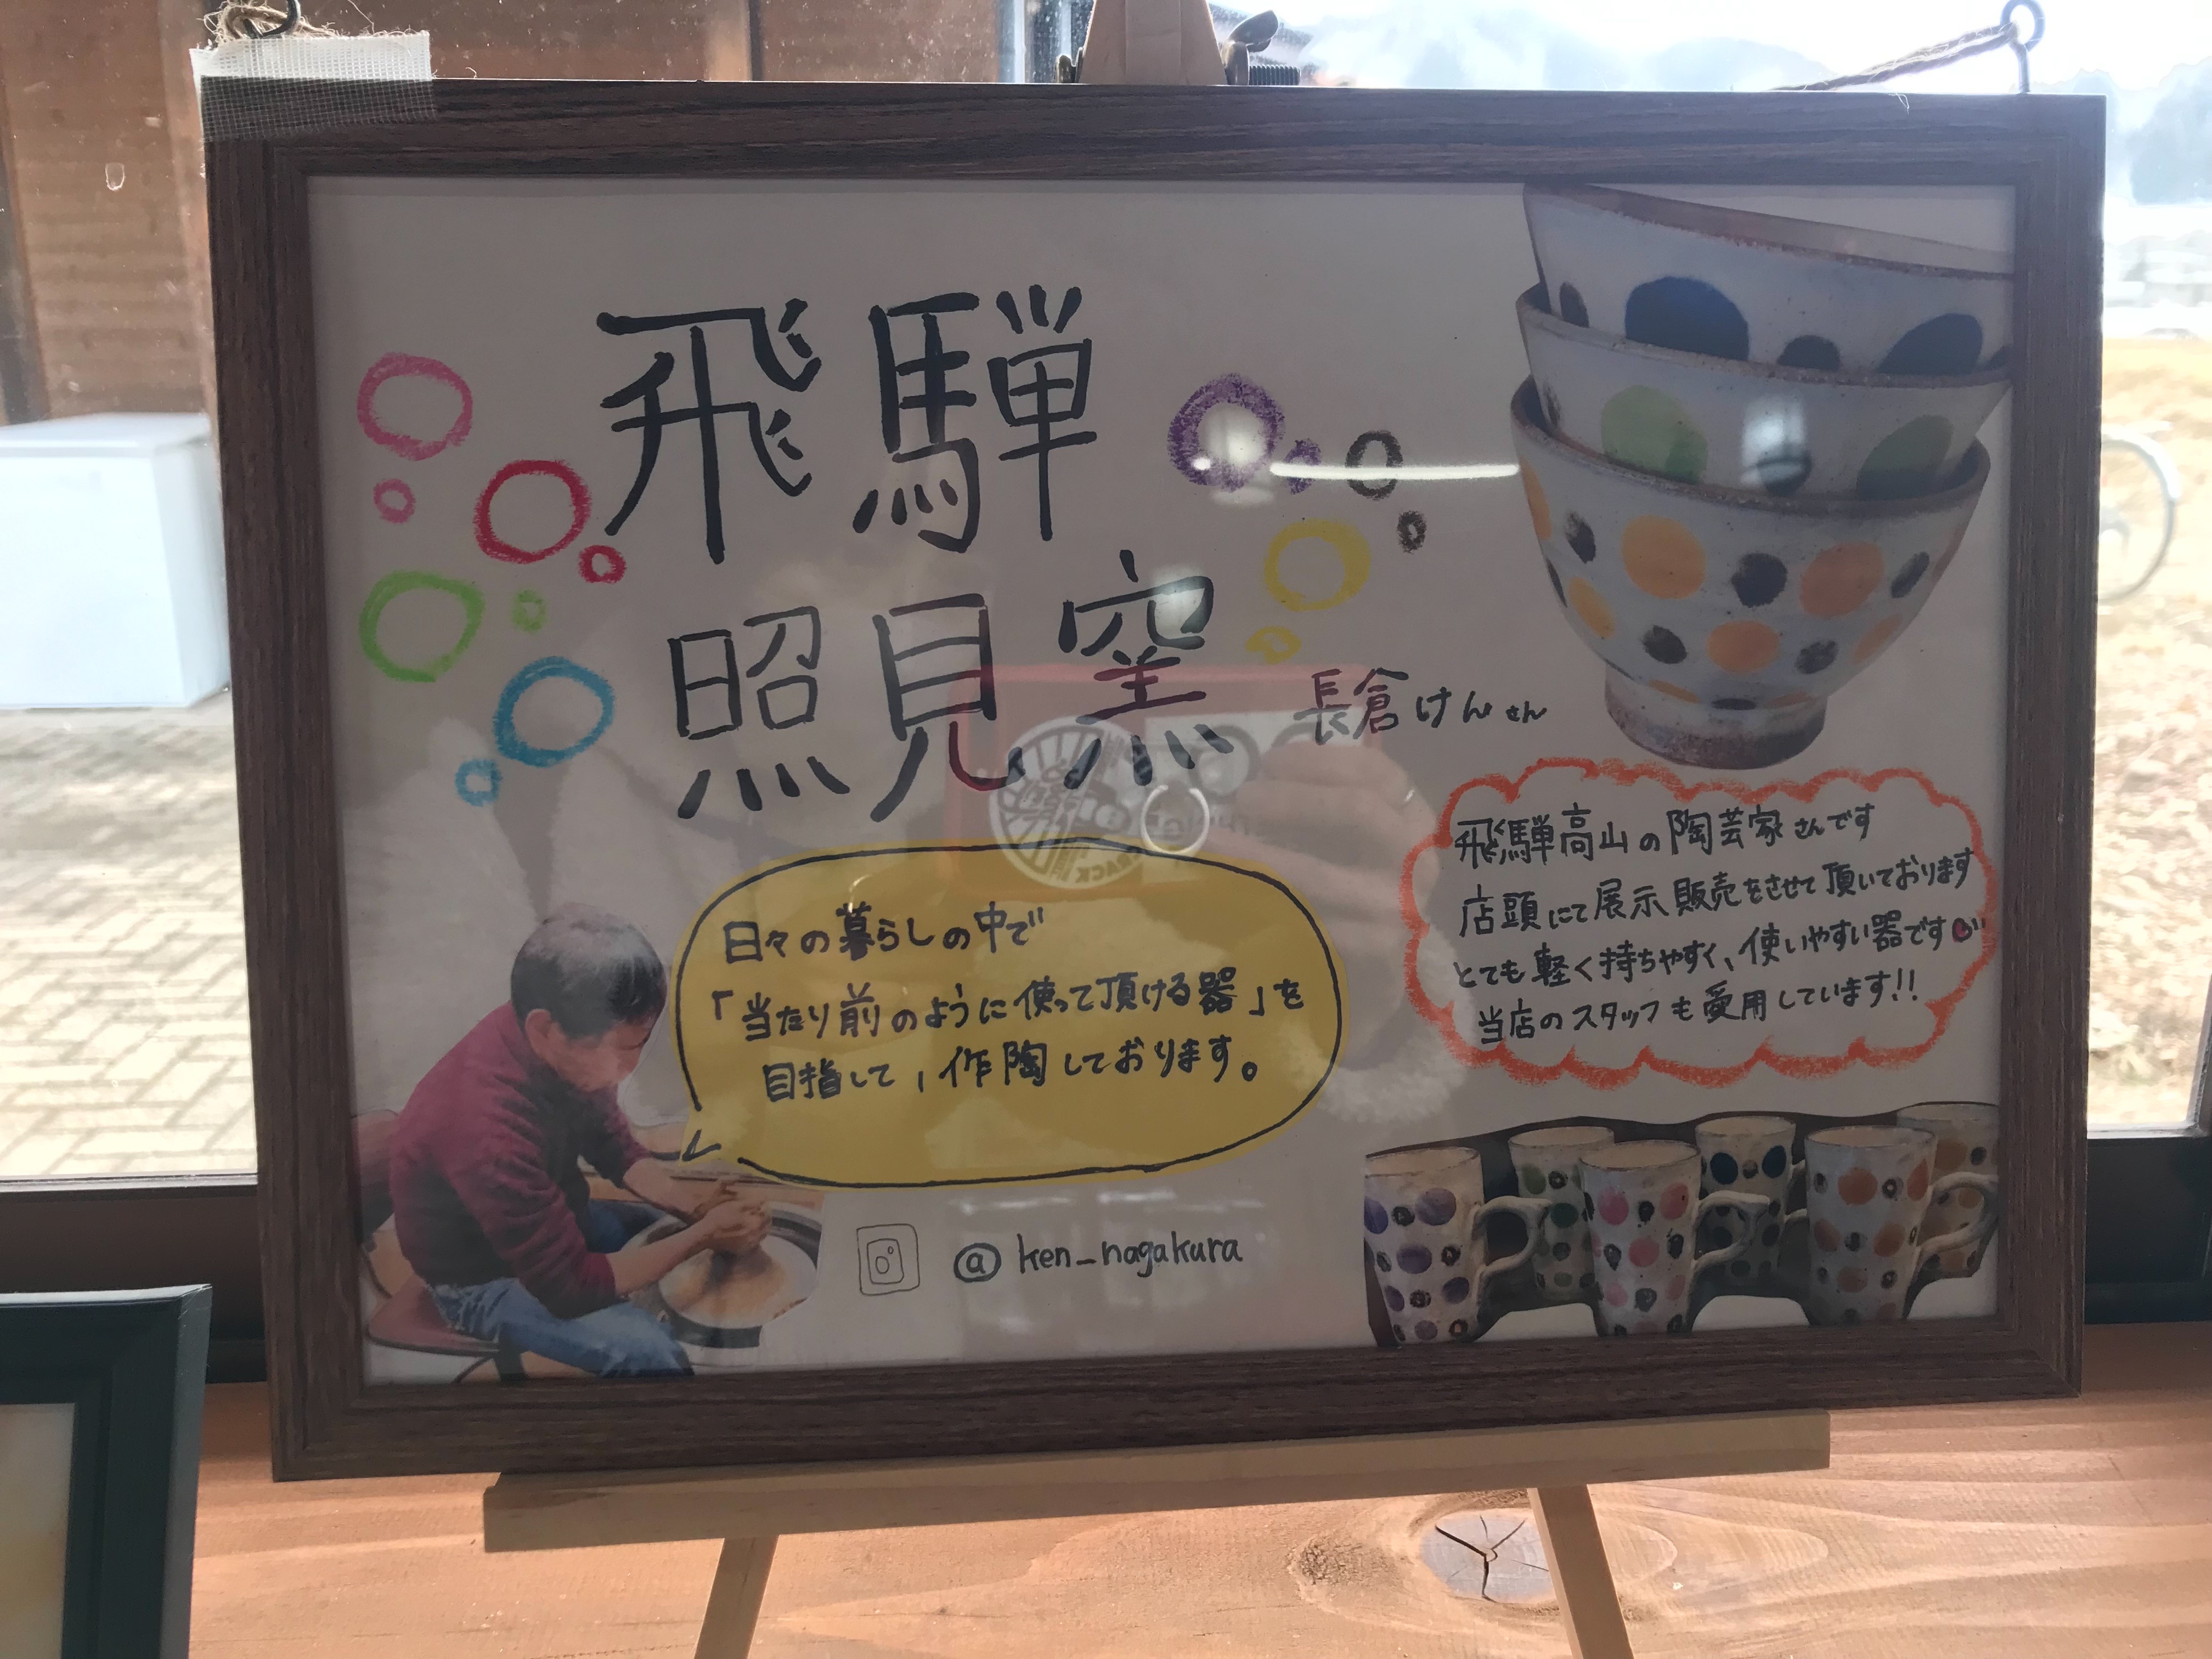 飛騨
照見窯
長倉けんさん
日々の暮らしの中で
「当たり前のように使って頂ける器」を
目指して、作陶しております。
飛騨高山の陶芸家さんです
店頭にて展示販売をさせて頂いております
とても軽く持ちやすく、使いやすい器です
当店のスタッフも愛用しています!!
@ ken_nagakura